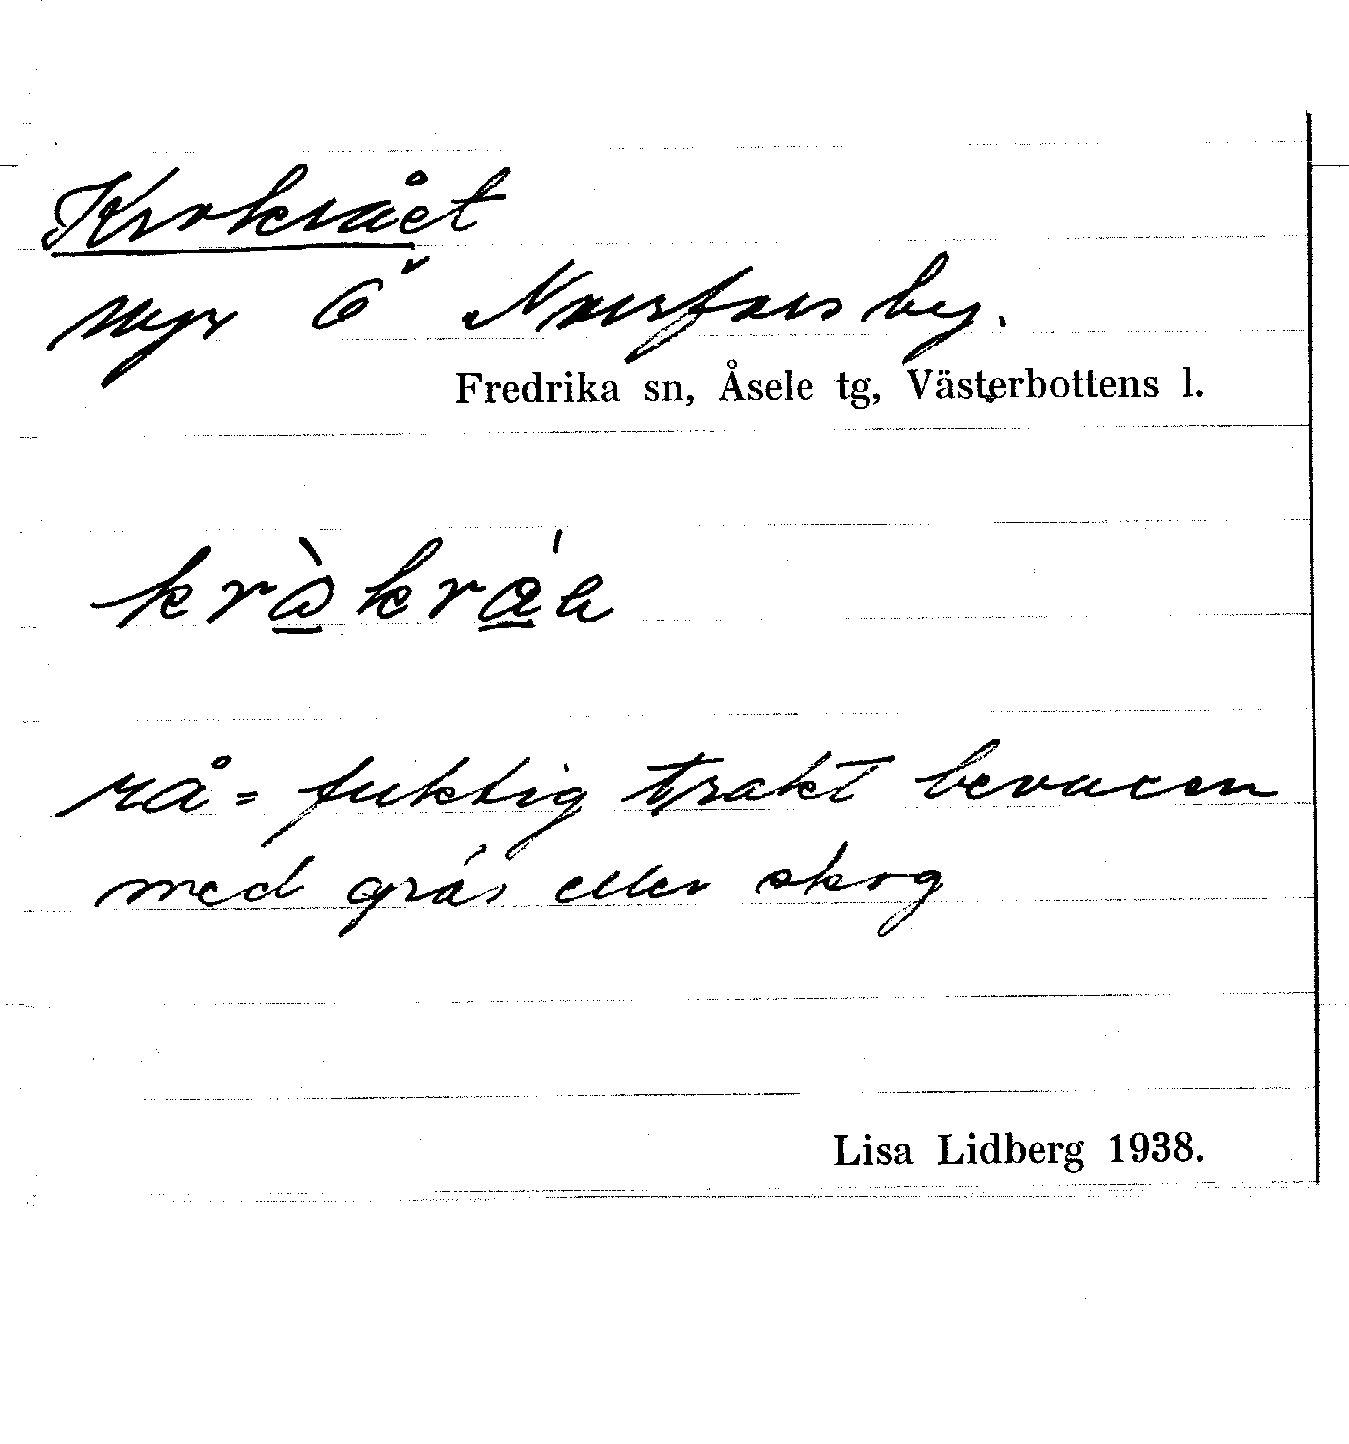 Krokrået
myr Ö Norrfors by.
Fredrika sn, Åsele tg, Västerbottens l.
rå = fuktig trakt bevuxen
med gräs eller skog
Lisa Lidberg 1938.